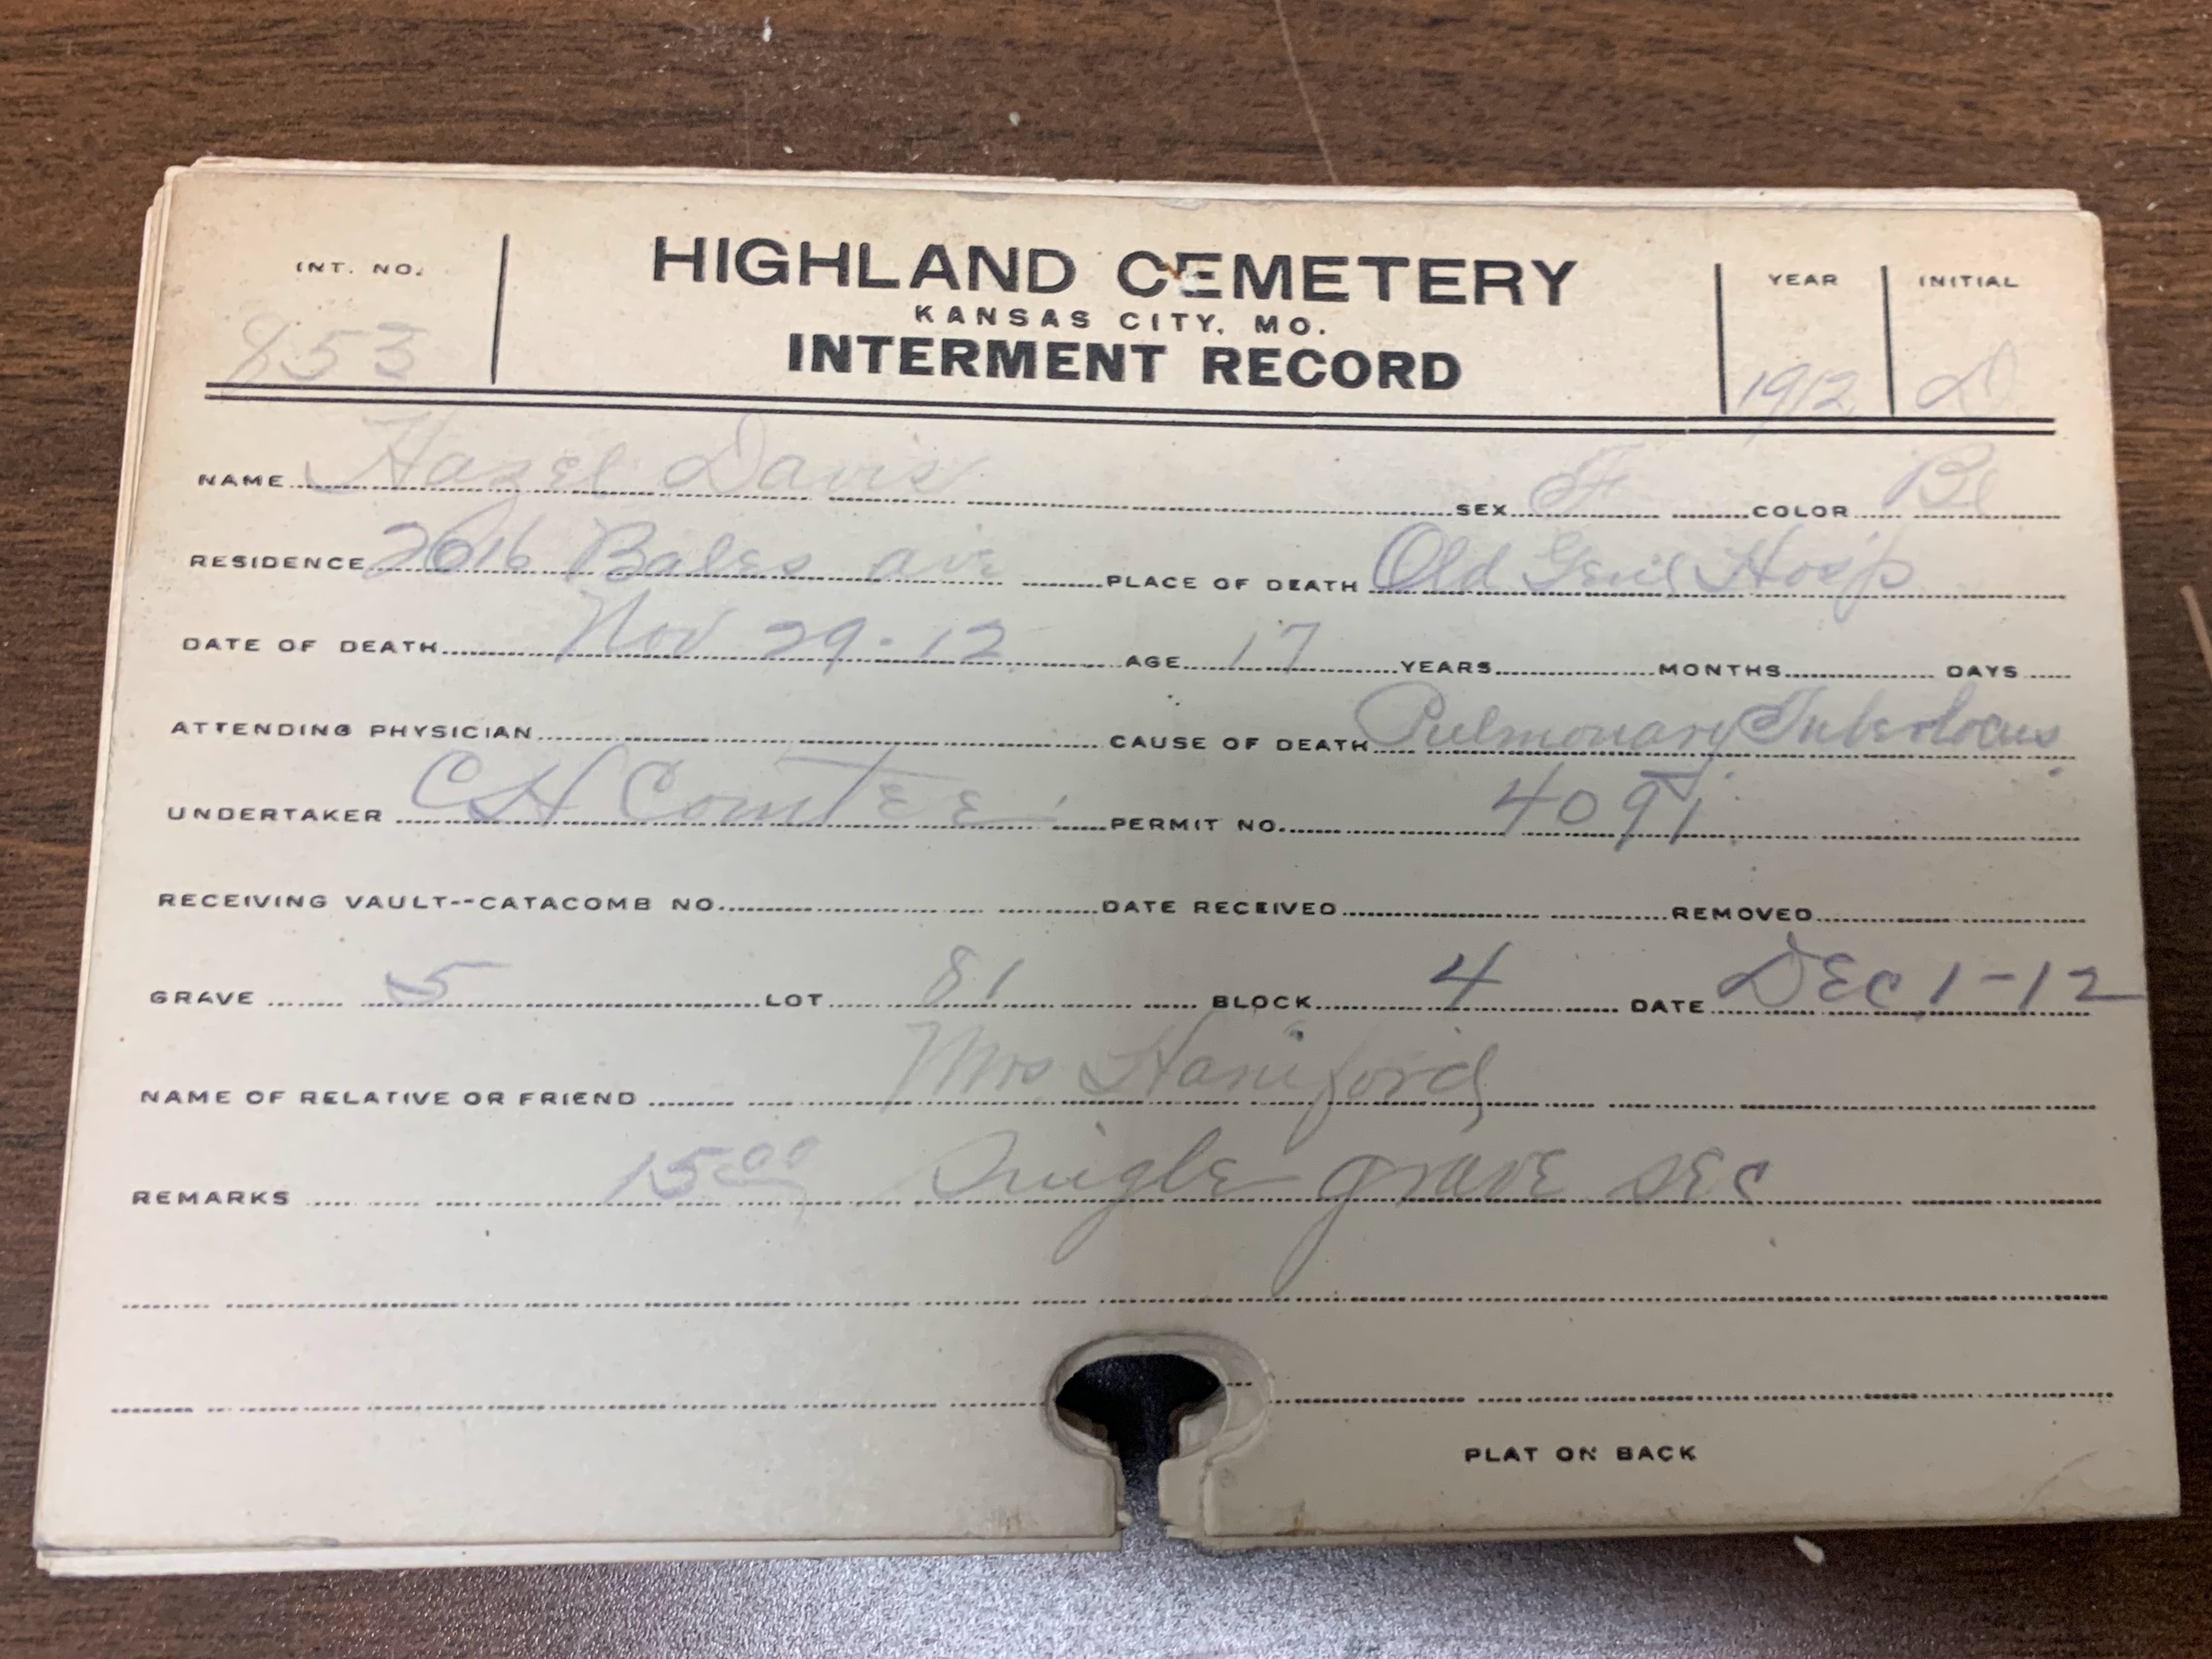 INT. NO. HIGHLAND CEMETERY YEAR INITIAL
KANSAS CITY, MO.
853 INTERMENT RECORD 1912 D
NAME Hazel Davis SEX F COLOR Bl
RESIDENCE 2616 Bales ave PLACE OF DEATH Old Genl Hosp
DATE OF DEATH Nov 29-12 AGE 17 YEARS MONTHS DAYS
ATTENDING PHYSICIAN CAUSE OF DEATH Pulmonary
UNDERTAKER C H PERMIT NO. 4091
RECEIVING VAULT--CATACOMB NO. DATE RECEIVED REMOVED
GRAVE 5 LOT 81 BLOCK 4 DATE DEC 1-12
NAME OF RELATIVE OR FRIEND Mrs Haniford
REMARKS 15.00 Single grave sec
PLAT ON BACK